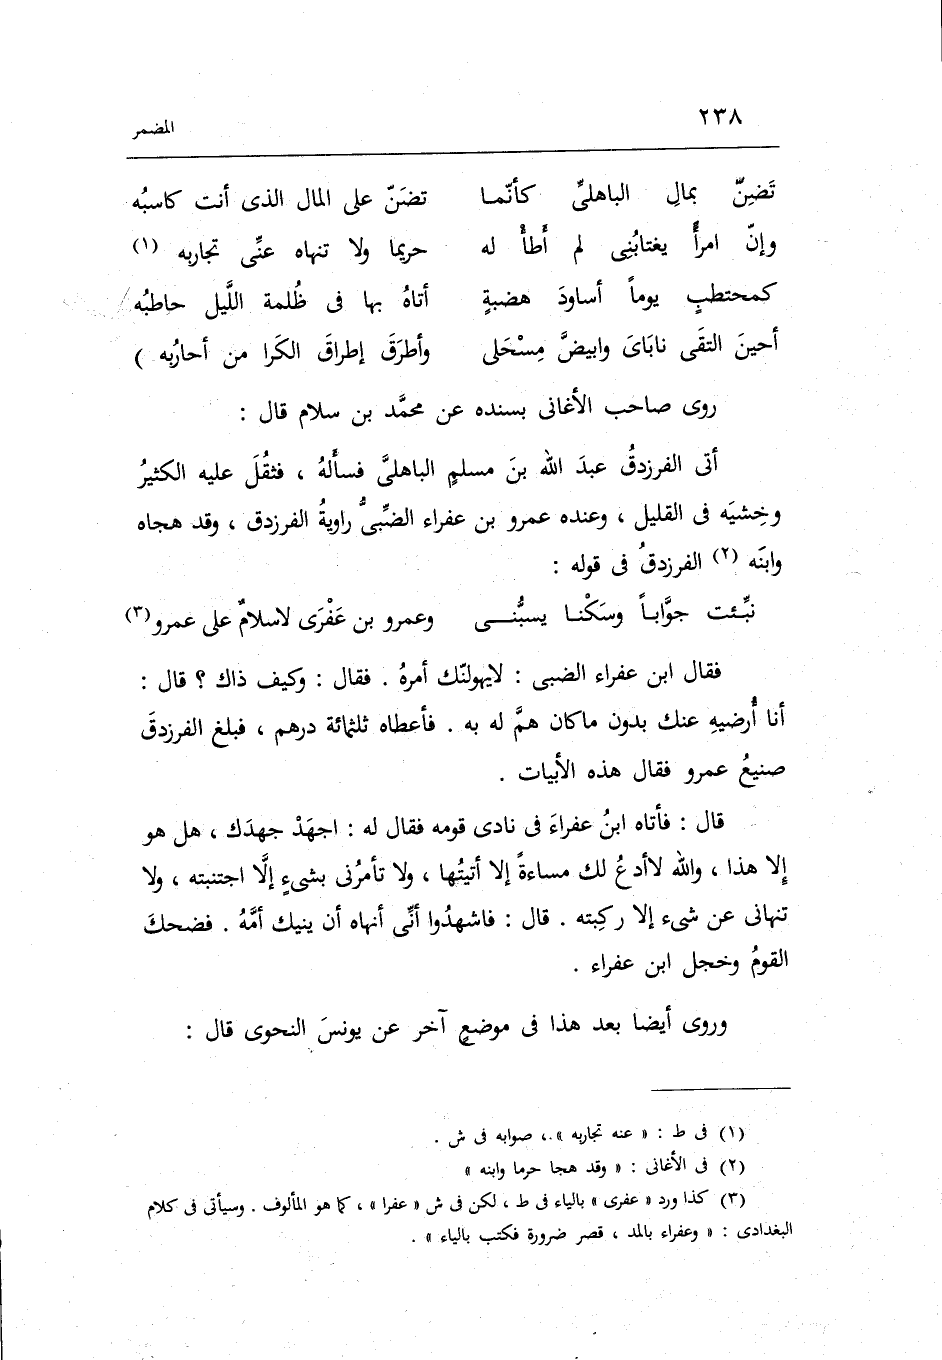 ٢٣٨ المضمر
تَضِنّ بمالِ الباهليِّ كأنّمـا تضَنّ على المال الذى أنت كاسبُه
وإنّ امرأً يغتابُنِى لم أَطأْ له حريما ولا تنهاه عنِّى تجاربه (١)
كمحتطبٍ يوماً أساودَ هضبةٍ أتاهُ بها فى ظُلمة اللَّيل حاطبُه
أحينَ التقَى نابَاىَ وابيضَّ مِسْحَلى وأطرَقَ إطراقَ الكَرا من أحارُبه )
روى صاحب الأغانى بسنده عن محمَّد بن سلام قال :
أتى الفرزدقُ عبدَ الله بنَ مسلمٍ الباهليَّ فسأَلهُ ، فثقُلَ عليه الكثيرُ
وخِشيَه فى القليل ، وعنده عمرو بن عفراء الضبِّىُّ راويةُ الفرزدق ، وقد هجاه
وابنَه (٢) الفرزدقُ فى قوله :
نبِّئت جوَّاباً وسَكْنـا يسبُّنـــى وعمرو بن عَفْرَى لاسلامٌ على عمرو(٣)
فقال ابن عفراء الضبى : لايهولنّك أمرهُ . فقال : وكيف ذاك ؟ قال :
أنا أُرضيهِ عنك بدون ماكان همَّ له به . فأعطاه ثلثمائة درهم ، فبلغ الفرزدقَ
صنيعُ عمرو فقال هذه الأبيات .
قال : فأتاه ابنُ عفراءَ فى نادى قومه فقال له : اجهَدْ جهدَك ، هل هو
إِلا هذا ، والله لاأدعُ لك مساءةً إلا أتيتُها ، ولا تأمرُنى بشىءٍ إلَّا اجتنبته ، ولا
تنهانى عن شىء إلا ركِبته . قال : فاشهدُوا أنِّى أنهاه أن ينيك أمَّهُ . فضحكَ
القومُ وخجل ابن عفراء .
وروى أيضا بعد هذا فى موضعٍ آخر عن يونسَ النحوى قال :
(١) فى ط : « عنه تجاربه » ، صوابه فى ش .
(٢) فى الأغانى : « وقد هجا حرما وابنه »
(٣) كذا ورد « عفرى » بالياء فى ط ، لكن فى ش « عفرا » ، كما هو المألوف . وسيأتى فى كلام
البغدادى : « وعفراء بالمد ، قصر ضرورة فكتب بالياء » .